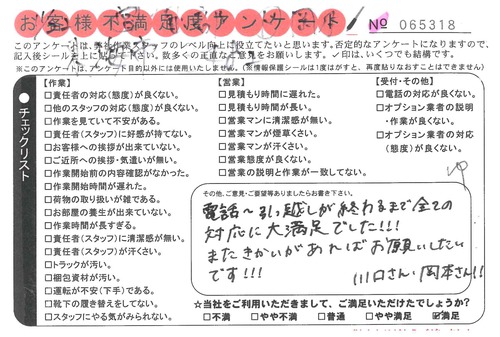 お客様不満足度アンケート
No 065318
このアンケートは、弊社作業スタッフのレベル向上に役立てたいと思います。否定的なアンケートになりますので、
記入後シールを上に貼って下さい。数多くの正直なご意見をお願いします。✓印は、いくつでも結構です。
※このアンケートは、アンケート目的以外には使用いたしません。(※情報保護シールは1度はがすと、再度貼りなおすことはできません)
チェックリスト
【作業】
□責任者の対応(態度)が良くない。
□他のスタッフの対応(態度)が良くない。
□作業を見ていて不安がある。
□責任者(スタッフ)に好感が持てない。
□お客様への挨拶が出来ていない。
□ご近所への挨拶・気遣いが無い。
□作業開始前の内容確認がなかった。
□作業開始時間が遅れた。
□荷物の取り扱いが雑である。
□お部屋の養生が出来ていない。
□作業時間が長すぎる。
□責任者(スタッフ)に清潔感が無い。
□責任者(スタッフ)が汗くさい。
□トラックが汚い。
□梱包資材が汚い。
□運転が不安(下手)である。
□靴下の履き替えをしてない。
□スタッフにやる気がみられない。
【営業】
□見積もりに遅れた。
□見積もり時間が長い。
□営業マンに清潔感が無い。
□営業マンが煙草くさい。
□営業マンが汗くさい。
□営業態度が良くない。
□営業の説明と作業が一致してない。
【受付・その他】
□電話の対応が良くない。
□オプション業者の説明
・作業が良くない。
□オプション業者の対応
(態度)が良くない。
その他、ご意見・ご要望等ありましたらお書き下さい。
電話〜引っ越しが終わるまで全ての
対応に大満足でした!!!
またきかいがあればお願いしたい
です!!!
川口さん、岡本さん!!
☆当社をご利用いただきまして、ご満足いただけたでしょうか?
□不満 □やや不満 □普通 □やや満足 ☑満足